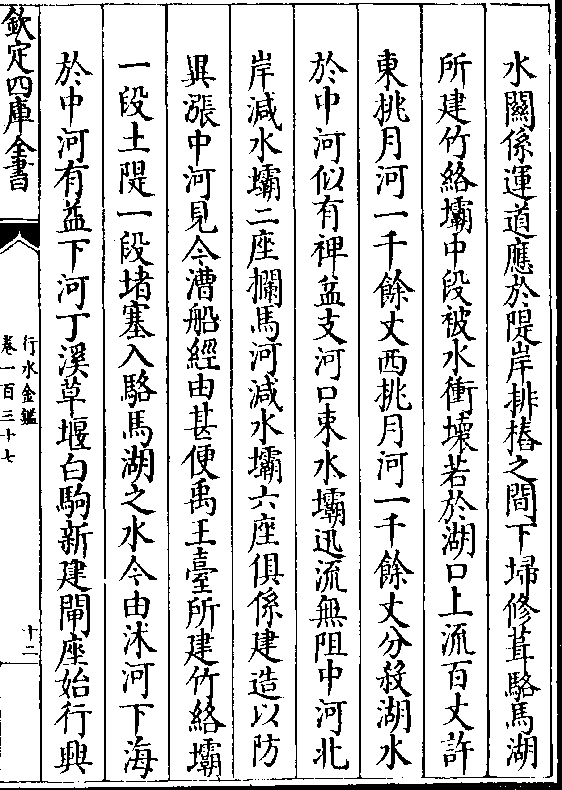 水關係運道應於隄岸排樁之間下埽修葺駱馬湖
所建竹絡壩中段被水衝壞若於湖口上流百丈許
東挑月河一千餘丈西挑月河一千餘丈分殺湖水
於中河似有裨益支河口東水壩迅流無阻中河北
岸減水壩二座攔馬河減水壩六座俱係建造以防
異漲中河見今漕船經由甚便禹王臺所建竹絡壩
一段土隄一段堵塞入駱馬湖之水今由沭河下海
於中河有益下河丁溪草堰白駒新建閘座始行興
欽定四庫全書
行水金鑑
卷一百三十七
十二